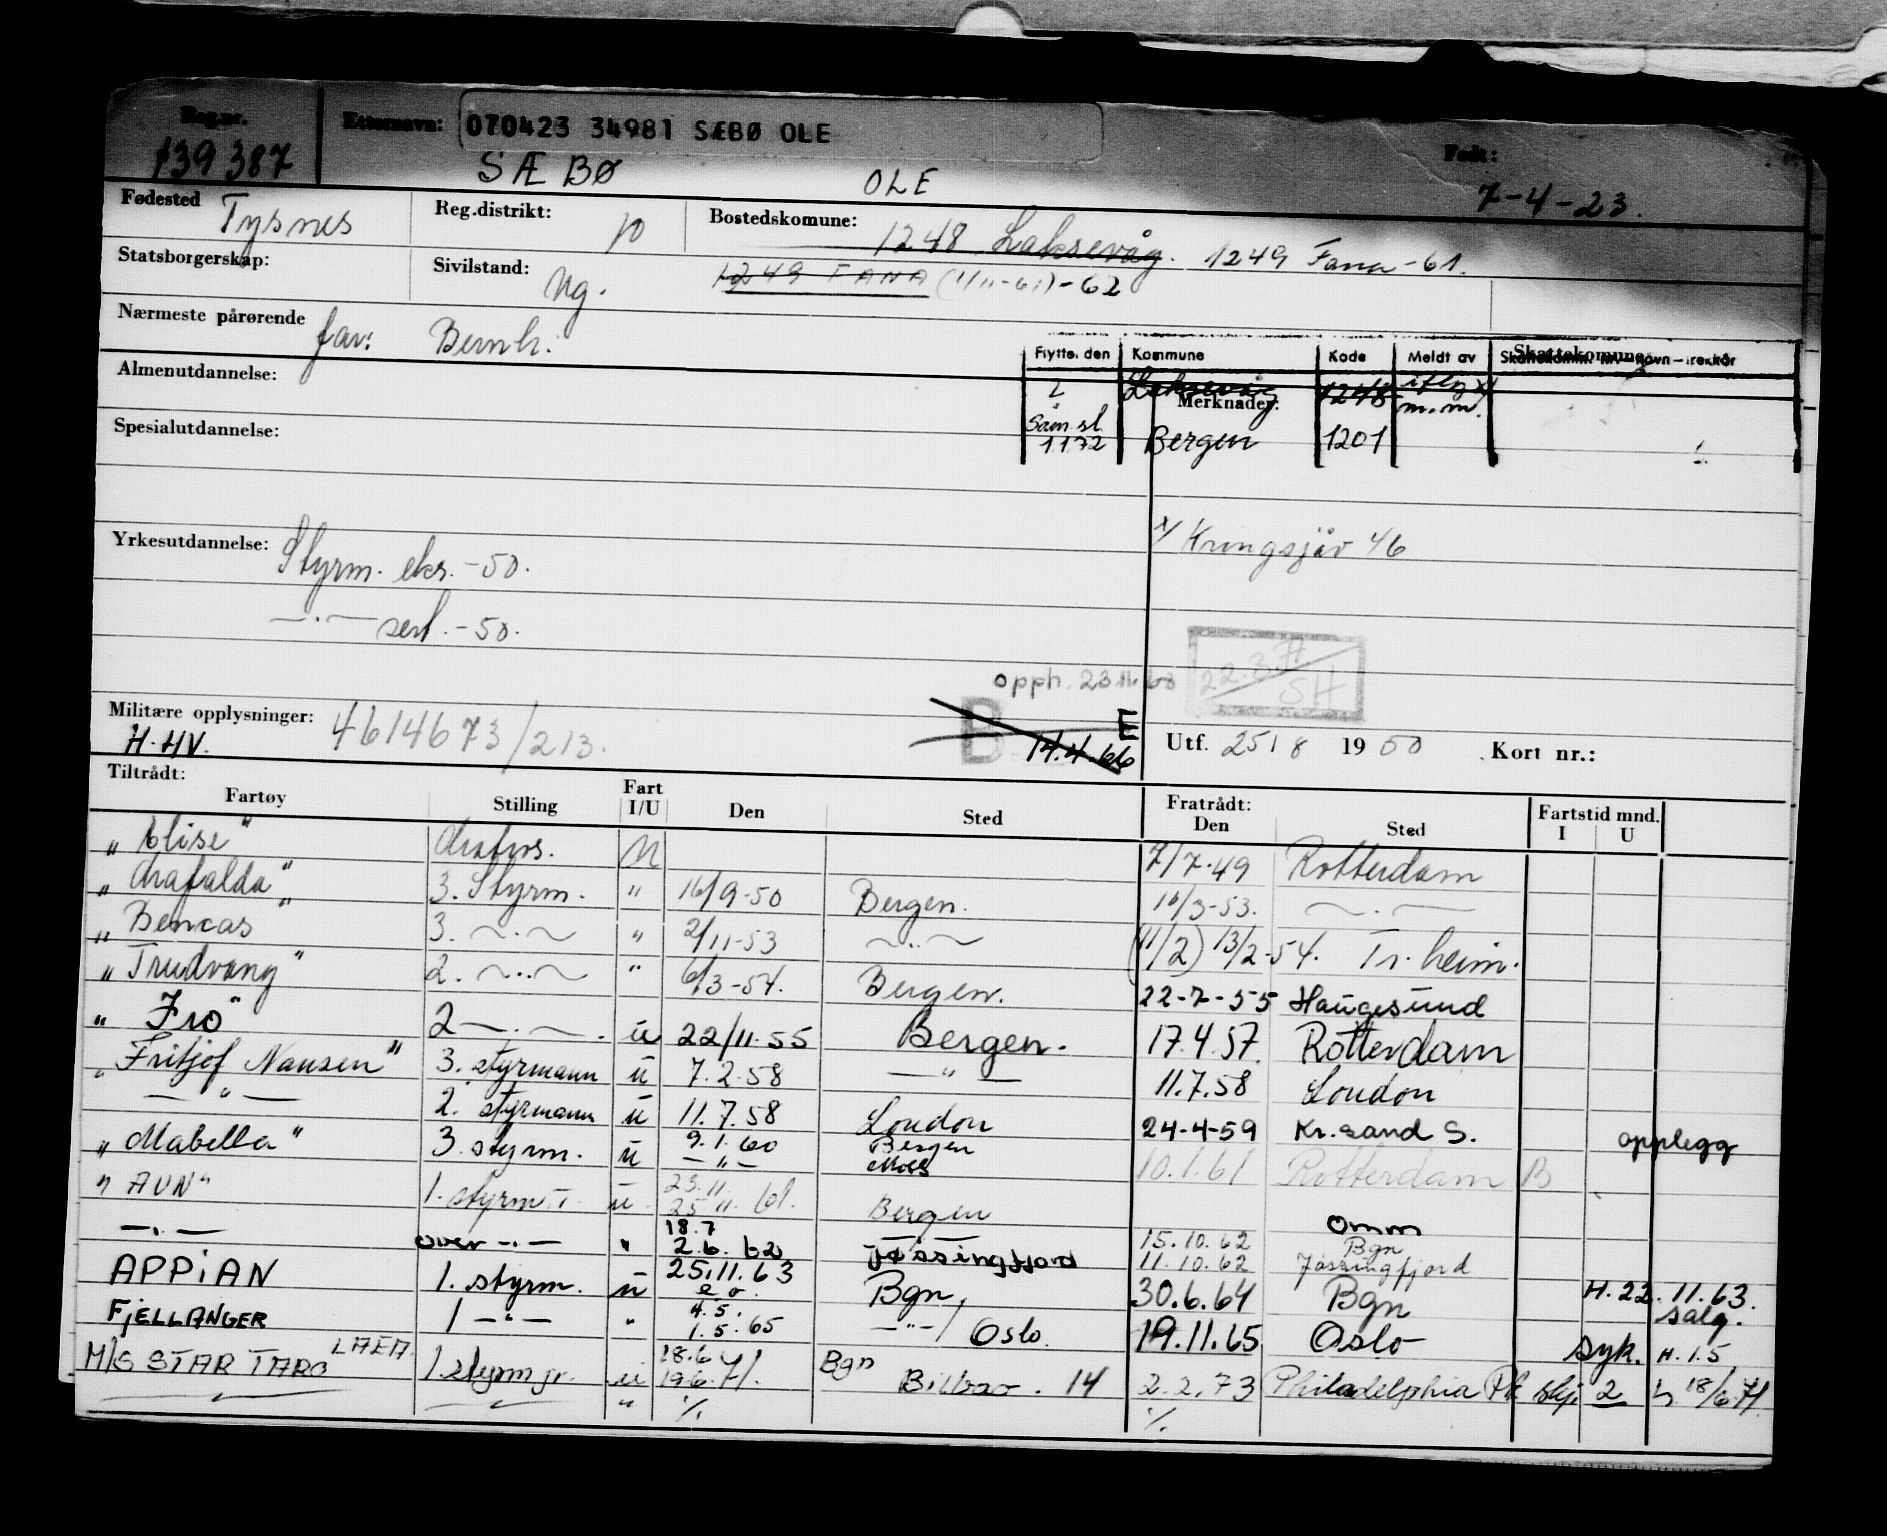 Reg.nr. Etternavn: 070423 34981 SÆBØ OLE Født:
139387 SÆBØ OLE 7-4-23.
Fødested Tysnes Reg.distrikt: 10 Bostedskomune: 1248 Laksevåg. 1249 Fana -61.
Statsborgerskap: Sivilstand: Ug. 1249 FANA (1/11-61)-62
Nærmeste pårørende far: Bernh.
Flytte. den Kommune Kode Meldt av Skattekommune
Almenutdannelse: Laksevåg 1248 m.m.
Merknader:
Spesialutdannelse: Sam.sl 1172 Bergen 1201
Yrkesutdannelse: Styrm. eks. -50. x/ Kringsjåv 46
—·— sert. -50.
opph. 23.11.63 22.3.71 SH
Militære opplysninger: 4614673/213. B E
H.HV. 14.4.66 Utf. 25/8 1950 Kort nr.:
Tiltrådt: Fratrådt: Fartstid mnd.
Fartøy Stilling Fart I/U Den Sted Den Sted I U
"Elise" U 7/7-49 Rotterdam
"Mafalda" 3. Styrm. " 16/9-50 Bergen. 16/3-53. —·—
"Bencas" 3. —··— " 2/11-53 —··— (11/2) 13/2-54. Tr.heim.
"Trudvang" 2. —··— " 6/3-54. Bergen. 22-7-55 Haugesund
"Frø" 2 —·—. u 22/11.55 Bergen. 17.4.57. Rotterdam
"Fritjof Nansen" 3. styrmann u 7.2.58 —"— 11.7.58 London
—"— 2. styrmann u 11.7.58 London 24-4-59 Kr.sand S. opplegg
"Mabella" 3. styrm. u 9.1.60 —"— Bergen Moss 10.1.61 Rotterdam B
"AUN" 1. styrm. u. 23.11. 25.11.61. Bergen Omm
—·— over —·— " 18.7 2.6.62 Jøssingfjord 15.10.62 11.10.62 Bgn Jøssingfjord
APPIAN 1. styrm. u 25.11.63 e.o. Bgn, 30.6.64 Bgn H.22.11.63. salg.
FJELLANGER 1 —"— " 4.5. 1.5.65 —"—/Oslo. 19.11.65 Oslo syk. H.1.5
M/S STAR TARO LAEA 1.styrm jr. u 18.6 19.6.71. Bgn Bilbao. 14 2.2.73 Philadelphia 2 h 18/6.71.
" ·/. ·/.